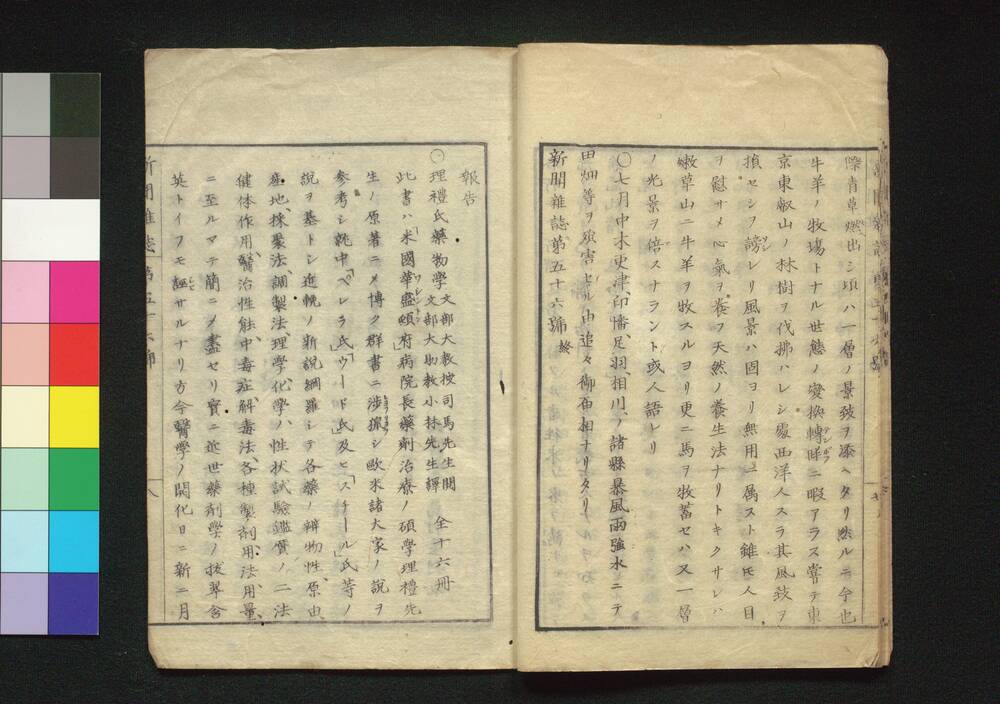 際青草燃出シ頃ハ一層ノ景致ヲ添ヘタリ然ルニ今也
牛羊ノ牧場トナル世態ノ変換轉眸ニ暇アラス嘗テ東
京東叡山ノ林樹ヲ伐拂ハレシ處西洋人スラ其風致ヲ
損セシヲ謗レリ風景ハ固ヨリ無用ニ属スト雖𪜈人目
ヲ慰サメ心氣ヲ養フ天然ノ養生法ナリトキクサレハ
嫩草山ニ牛羊ヲ牧スルヨリ更ニ馬ヲ牧蓄セハ又一層
ノ光景ヲ倍スナラント或人語レリ
○七月中木更津、印幡、足羽、相川、ノ諸縣暴風雨強水ニテ
田畑等ヲ損害セル由追々御届相ナリタリ
新聞雜誌第五十六號 終
報告
○理禮氏藥物學 文部大教授司馬先生閲 文部大助教小林先生譯 全十六冊
此書ハ「米國華盛頓府病院長藥劑治療ノ碩學理禮先
生ノ原著ニ〆博ク群書ニ渉獵シ歐米諸大家ノ説ヲ
参考シ就中「ペレラ氏」「ウード氏及ヒ「スチール」氏等ノ
説ヲ基トシ近晩ノ新説網羅シテ各藥ノ辨物性、原由、
産地、採聚法、調製法、理學化學ノ性状試驗鑑贋ノ二法
健体作用、醫治性能、中毒症、解毒法、各種製剤、用法、用量、
ニ至ルマテ簡ニ〆盡セリ實ニ近世藥剤學ノ抜翠含
英トイフモ誣サルナリ方今醫學ノ開化日ニ新ニ月
新聞雜誌 第五十六號 八